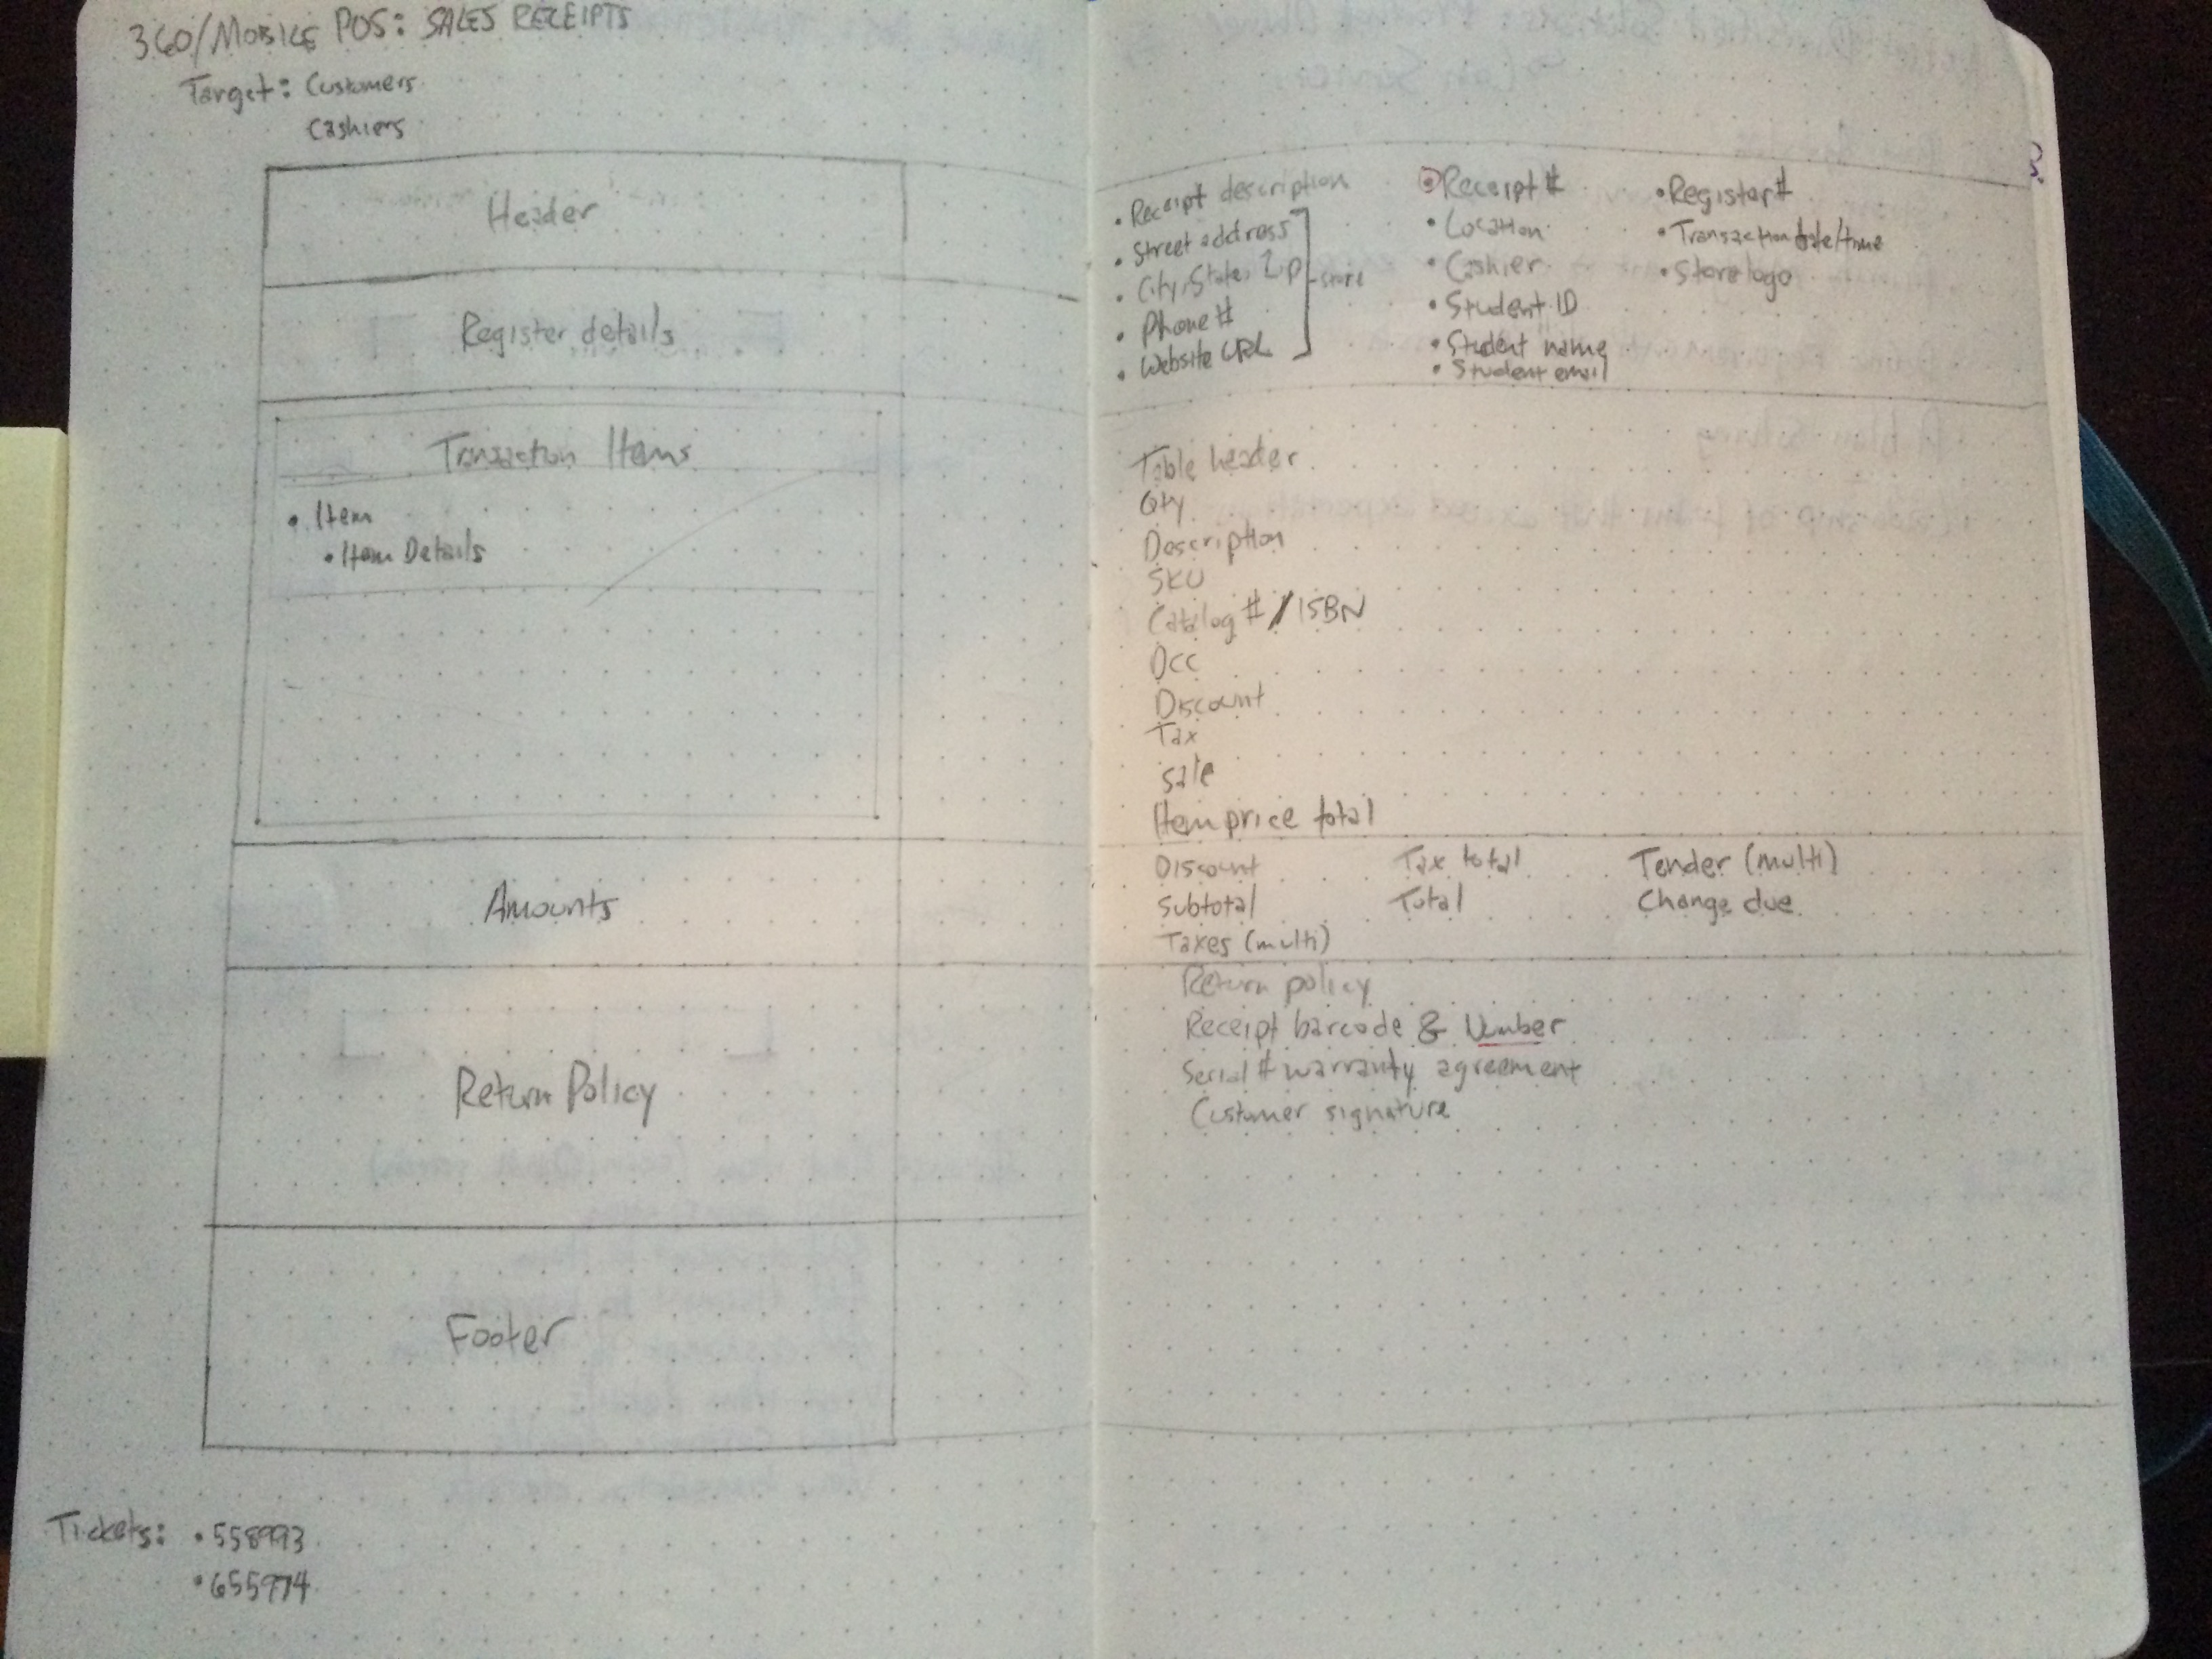 360/MOBILE POS: SALES RECEIPTS
Target: Customers
Cashiers
Header
Register details
Transaction Items
• Item
• Item Details
Amounts
Return Policy
Footer
Tickets: • 558993
• 655974
• Receipt description
• Street address
• City, State, Zip
• Phone #
• Website URL
store
• Receipt #
• Location
• Cashier
• Student ID
• Student name
• Student email
• Register #
• Transaction date/time
• Store logo
Table header
Qty
Description
SKU
Catalog # / ISBN
DCC
Discount
Tax
Sale
Item price total
Discount
Subtotal
Taxes (multi)
Tax total
Total
Tender (multi)
Change due
Return policy
Receipt barcode & Number
Serial # warranty agreement
Customer signature